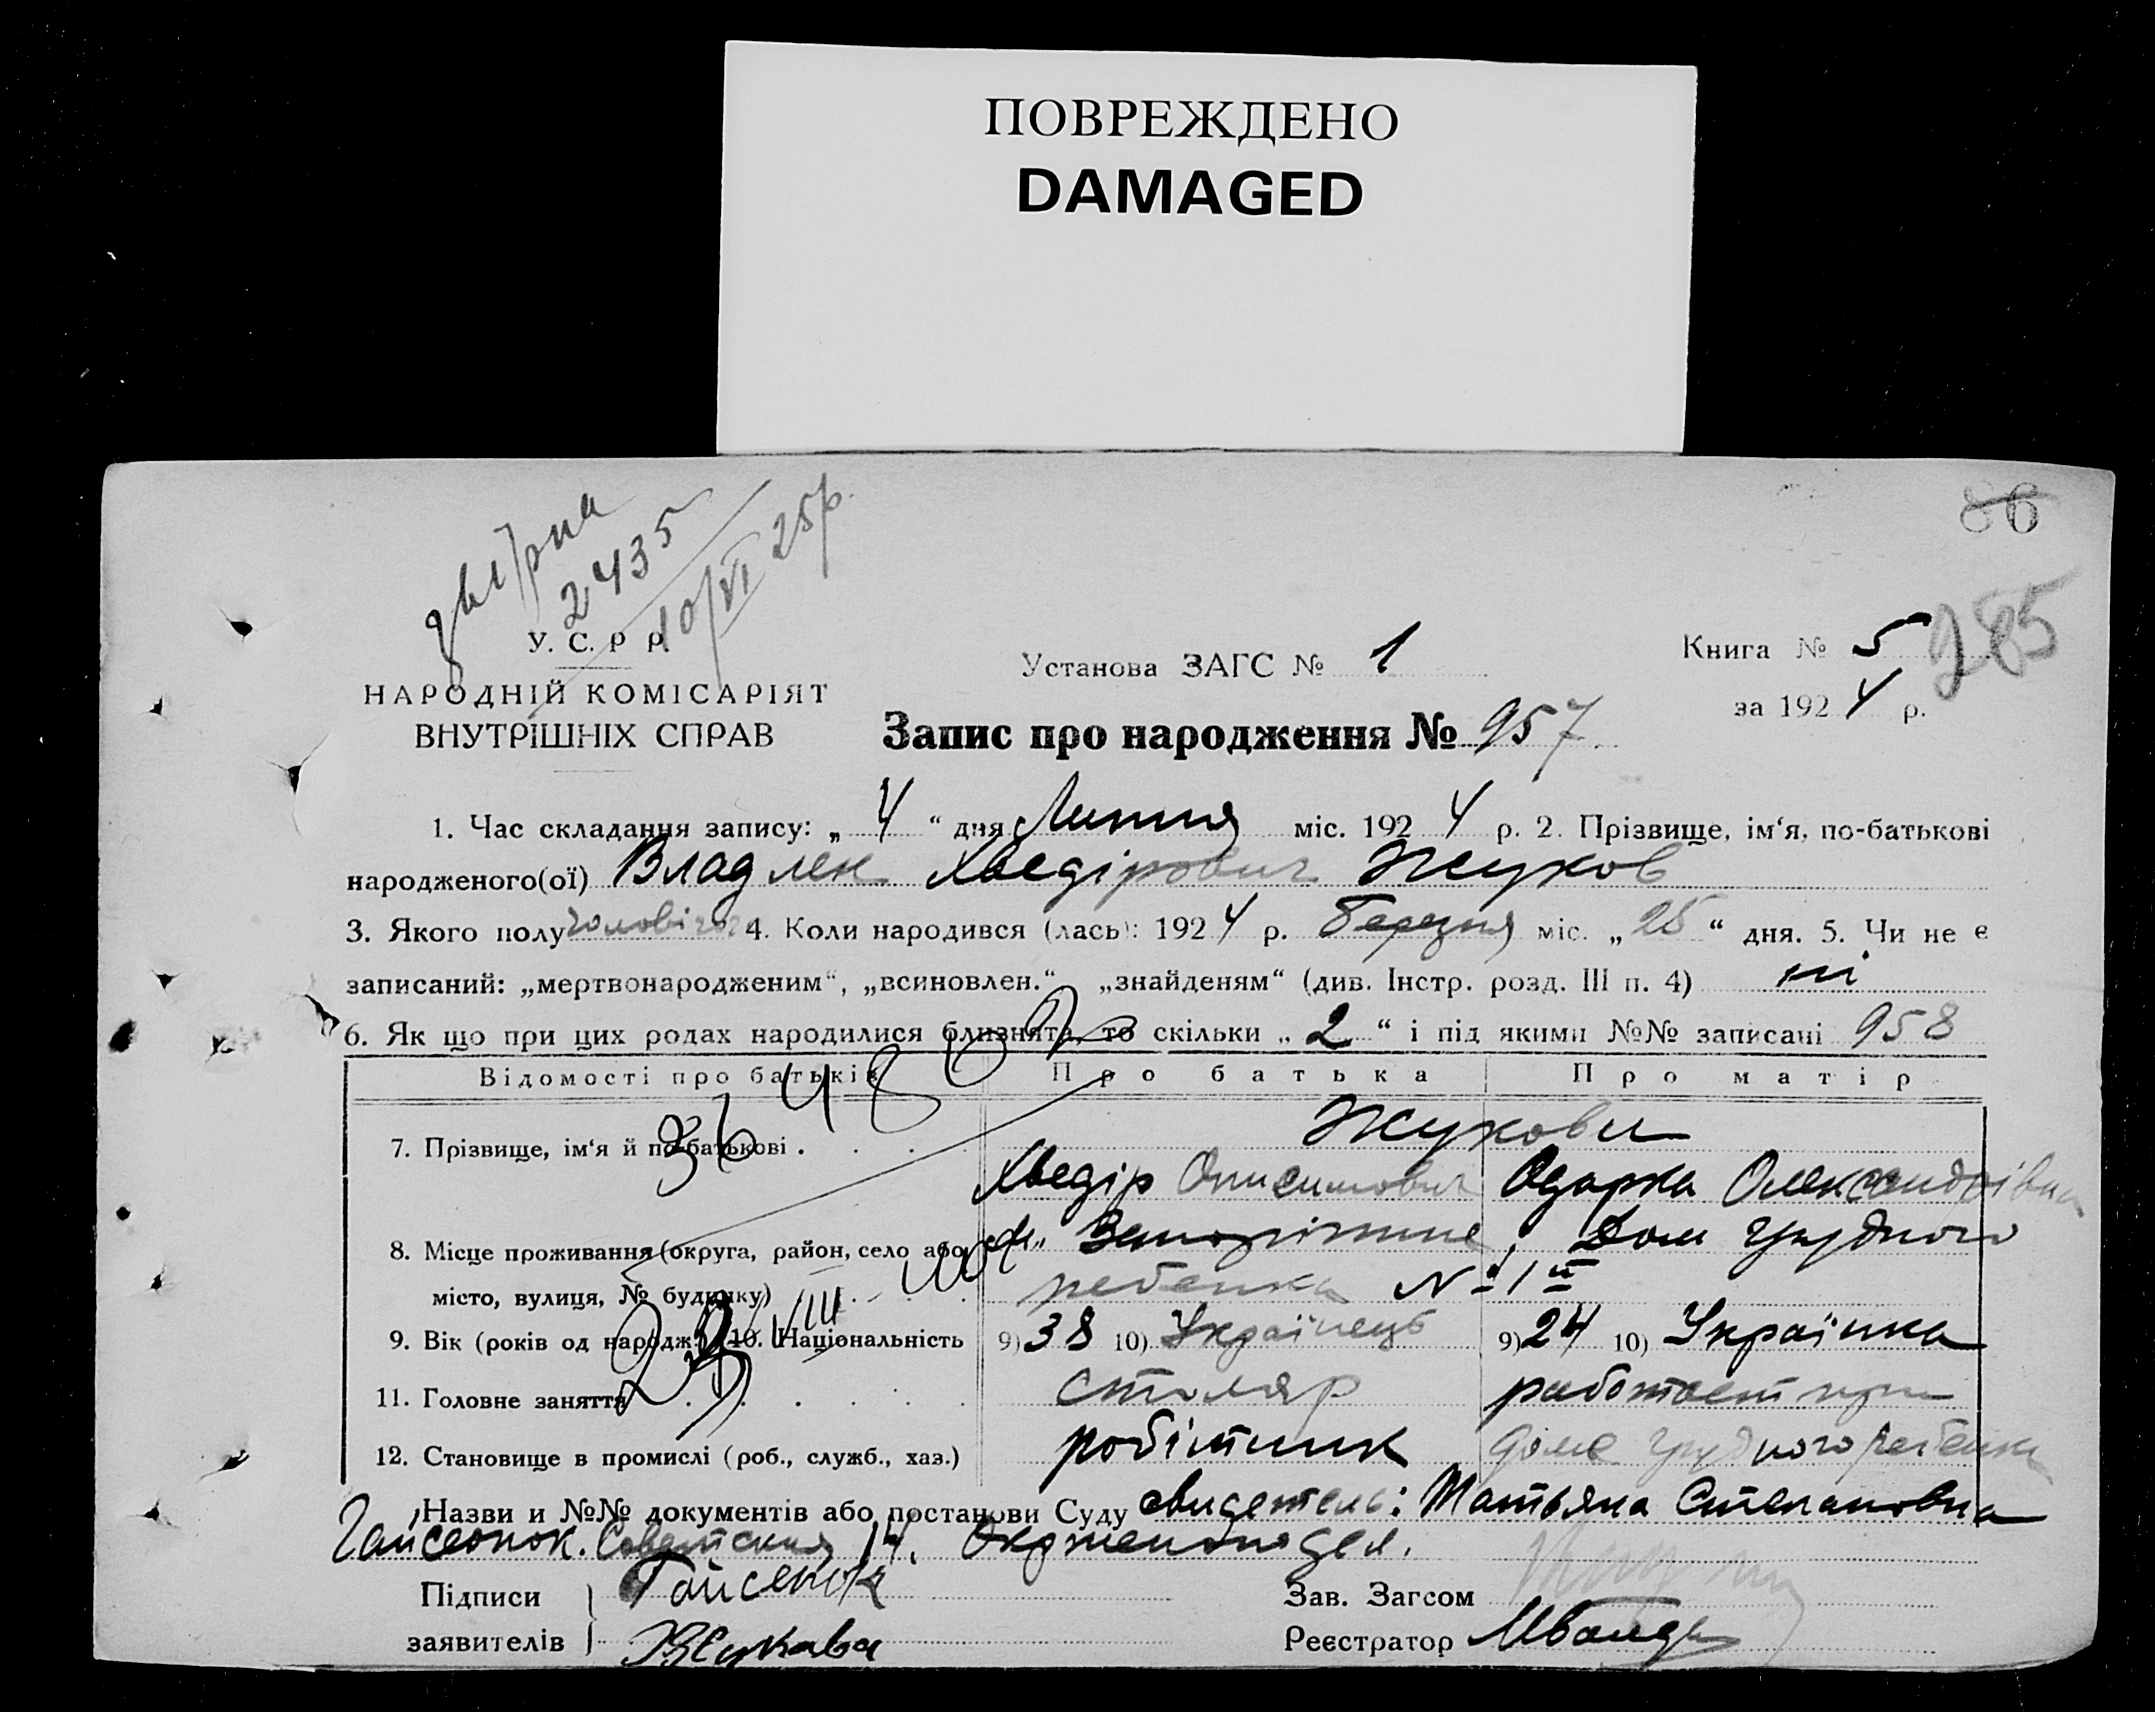 ПОВРЕЖДЕНО
DAMAGED
86
2435
10/VI 25р.
285
У. С. Р Р.
НАРОДНІЙ КОМІСАРІЯТ
ВНУТРІШНІХ СПРАВ
Установа ЗАГС № 1
Книга № 5
за 1924 р.
Запис про народження № 957
1. Час складання запису: „ 4 “ дня Липня міс. 1924 р. 2. Прізвище, ім‘я, по-батькові
народженого(ої) Владлен Хведірович Жуков
3. Якого полу чоловічого 4. Коли народився (лась): 1924 р. Березня міс. „ 25 “ дня. 5. Чи не є
записаний: „мертвонародженим“, „всиновлен.“ „знайденям“ (див. Інстр. розд. III п. 4) ні
6. Як що при цих родах народилися близнята, то скільки „ 2 “ і під якими №№ записані 958
Відомості про батьків Про батька Про матір
7. Прізвище, ім‘я й по-батькові . Жукови
Хведір Онисимович Одарка Олександрівна
8. Місце проживання (округа, район, село або м. Запоріжжє, Дом грудного
місто, вулиця, № будинку) ребенка № 1й
9. Вік (років од народж.) 10. Національність 9) 38 10) Українець 9) 24 10) Українка
11. Головне заняття столяр работает при
12. Становище в промислі (роб., служб., хаз.) робітник доме грудного ребенка
Назви и №№ документів або постанови Суду свидетель: Татьяна Степановна
Гайсенок. Советская 14.
Підписи Гайсенок
заявителів Жукова
Зав. Загсом
Реєстратор